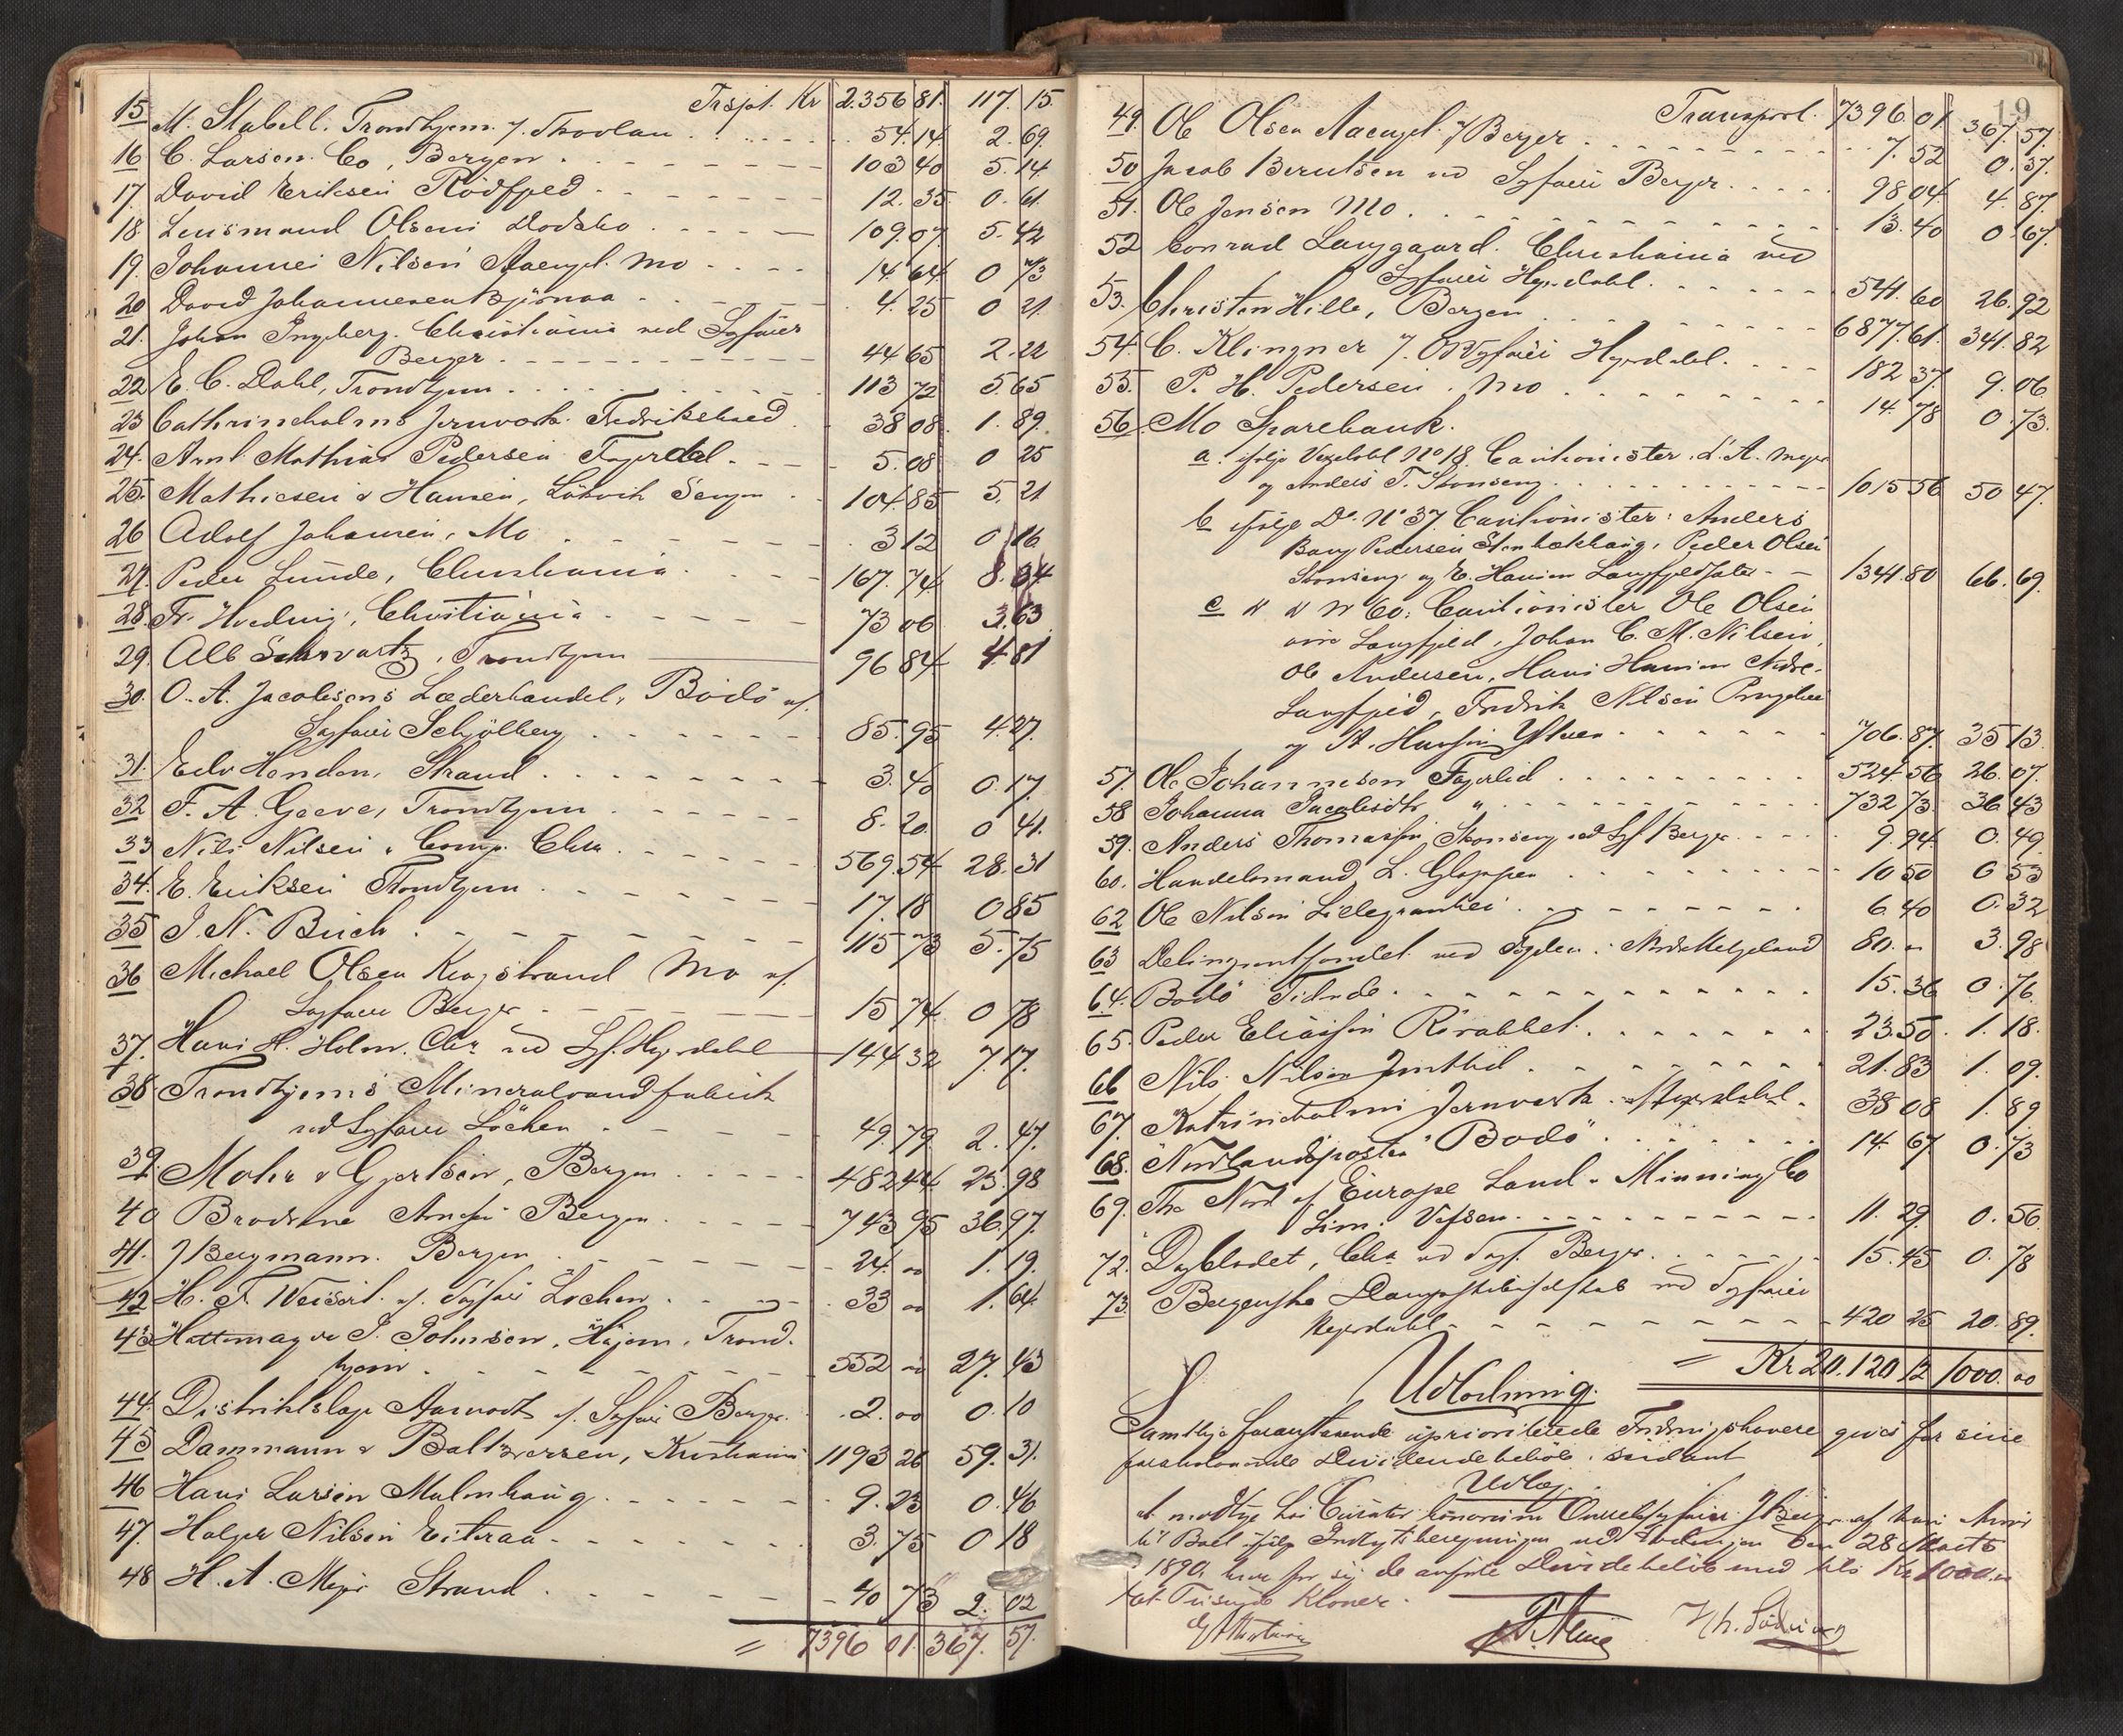 Trspt. Kr 2.356 81. 117. 15.
15 M. Stabell. Trondhjem. 54. 14. 2. 69.
16 C. Larsen. Co, Bergen. 103 40 5. 14.
17. David Eriksen Rödfjed 12. 35 0. 61.
18 Lensmand Olsens Dødsbo 109. 07. 5. 42
19. Johannes Nilsen Aaengel. Mo 14. 64 0 73
20 David Johannesen Bjørnaa 4. 25 0 21
21. Johan Ingeberg. Christiania ved Sagfører
Berger 44 65 2. 22
22 E. C. Dahl, Trondhjem 113 72 5. 65
23 Cathrineholms Jernværk. Fredrikshald. 38 08 1. 89.
24. Arnt Mathias Pedersen 5. 08 0 25
25. Mathiesen & Hansen, Bergen 104. 85 5. 21
26 Adolf Johansen, Mo 3 12 0 16
27. Peder Lunde, Christiania 167. 74 8. 34
28. Fr. Christiania 73 06 3. 63
29. Alb Schwartz, Trondhjem 96 84 4. 81
30. O. A. Jacobsens Læderhandel, Bodö v.
Sagfører Schjölberg 85. 95 4. 27.
31. Edv Henden, Strand. 3. 40 0. 17.
32 F. A. Greve, Trondhjem 8. 20. 0 41.
33 Nils Nilsen & Comp. Chra 569. 54 28. 31
34. E. Eriksen Trondhjem 17. 18 0 85
35 J. N. Buch. 115 73 5. 75
36 Michael Olsen Mo v.
Sagfører Berger 15 74 0 78
37. Hans H. Holm. Chr. ved Sf. Hejerdahl 144 32 7. 17.
38 Trondhjems Mineralvandfabrik
ved Sagfører Löchen 49. 79 2. 47.
39. Mohr & Gjertsen, Bergen 482 44 23. 98
40 Brødrene Bergen 743 95 36. 97.
41. J Bergmann. Bergen 24. 00 1. 19.
42 H. F. Weisert. v. Sagfører Löchen 33 00 1. 64.
43 Hattemager J. Johnsen, Trond-
hjem 552 00 27. 43
44. Distriktslæge v. Sagfører Berger. 2. 00 0. 10
45 Dammann & Baltzersen, Kristiania 1193 26 59. 31.
46 Hans Larsen Malmhaug 9. 23 0. 46
47. Holger Nilsen Eiteraa 3. 75 0 18
48 H. A. Meyer Strand 40 73 2. 02
= 7396 01. 367. 57.
19
Transport. 7396 01 367. 57.
49. Ole Olsen Aaengel. v/ Berger 7. 52 0. 37.
50 Jacob Berntsen ved Sagfører Berger 98 04 4. 87.
51. Ole Jensen Mo 13. 40 0. 67.
52 Conrad Langgaard. Christiania ved
Sagfører Hejerdahl 541. 60 26. 92
53. Christen Hille, Bergen 6877. 61. 341. 82
54. C. Klingner v. Hejerdahl 182 37. 9. 06
55. P. H. Pedersen. Mo 14. 78 0. 73.
56. Mo Sparebank.
a. ifølge No 18. Cautionister: L. A. Meyer
og Anders T. 1015 56 50 47.
b ifølge Do. No 37. Cautionister: Anders
Pedersen Peder Olsen
og E. Hansen 1341. 80 66. 69.
c " " " 60: Cautionister Ole Olsen
Langfjeld, Johan C. M. Nilsen,
Ole Andersen, Hans Hansen Nedre-
Langfjeld, Fredrik Nilsen
og A. Hansen 706. 87. 35 13.
57. Ole Johannesen Fagerlid 524. 56 26. 07.
58 Johanna Jacobsdtr " 732 73. 36 43
59. Anders Thomassen ved Sagf Berger 9. 94. 0. 49.
60. Handelsmand L. Gloppen 10 50 0 53
62 Ole Nilsen 6. 40 0. 32
63 Delinqventfondet ved Fogden i Nordre Helgeland 80. 00 3. 98
64. Bodö Tidende 15. 36 0. 76.
65. Peder Eliassen 23. 50. 1. 18.
66 Nils Nilsen 21. 83 1. 09.
67. Katrineholms Jernværk v Hejerdahl 38 08 1. 89
68. "Nordlandsposten" Bodö 14. 67 0. 73
69. The Nord of Europe Land & Minning Co
Lim. Vefsen 11. 29. 0. 56
72. Dagbladet, Chra ved Sagf. Berger 15. 45 0. 78
73. Bergenske Dampskibsselskab ved Sagfører
Hejerdahl 420 25 20. 89.
= Kr 20.120 12 1000. 00
Udlodning.
Samtlige foranstaaende uprioriterede Fordringshavere gives for sine
Dividendebeløb saadant
Udlæg
at modtage hos Curator bonorum
til Boet ifølge den 28 Marts
1890, hver for sig de anførte Dividebeløb med tils Kr 1000.00
Et Tusinde Kroner.